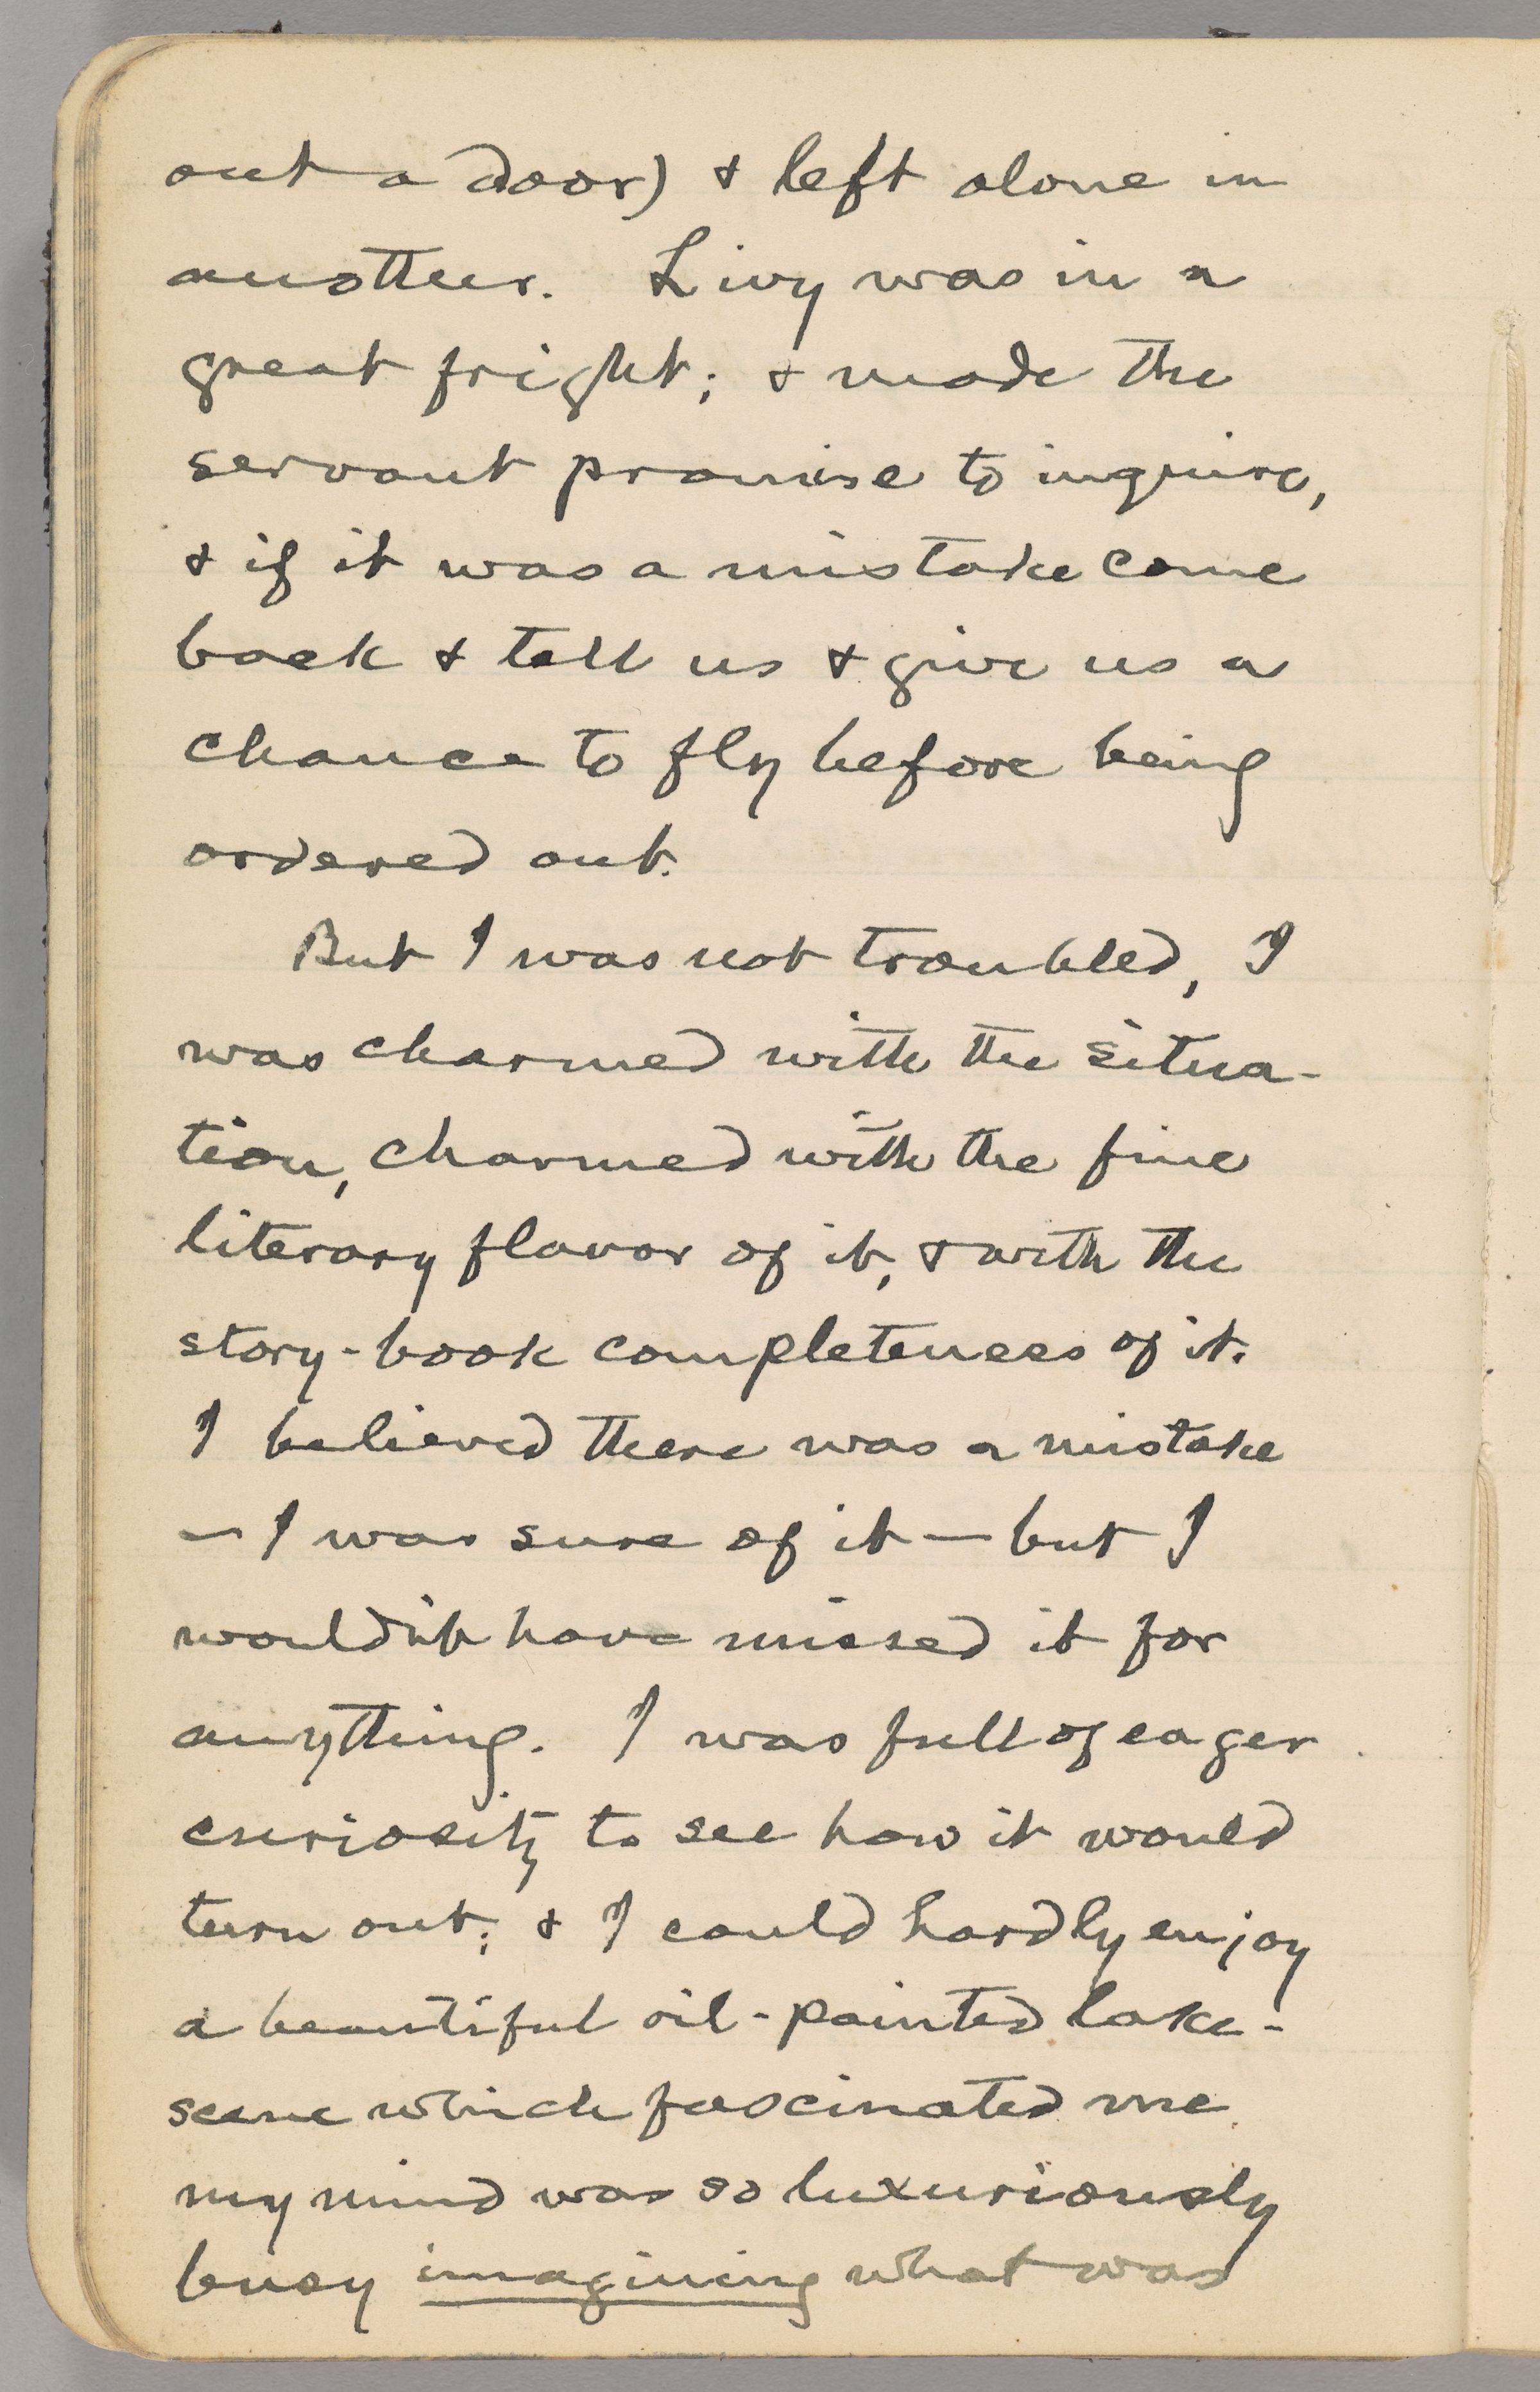 out a door) & left alone in
another. Livy was in a
great fright; & made the
servant promise to inquire,
& if it was a mistake come
back & tell us & give us a
chance to fly before being
ordered out.
But I was not troubled, I
was charmed with the situa-
tion, charmed with the fine
literary flavor of it, & with the
story-book completeness of it.
I believed there was a mistake
— I was sure of it — but I
wouldn't have missed it for
anything. I was full of eager
curiosity to see how it would
turn out; & I could hardly enjoy
a beautiful oil-painted lake-
scene which fascinated me
my mind was so luxuriously
busy imagining what was